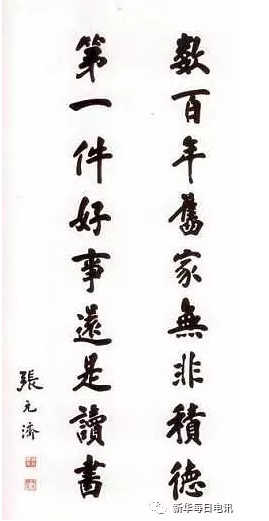 數百年舊家無非積德
第一件好事還是讀書
張元濟
新华每日电讯